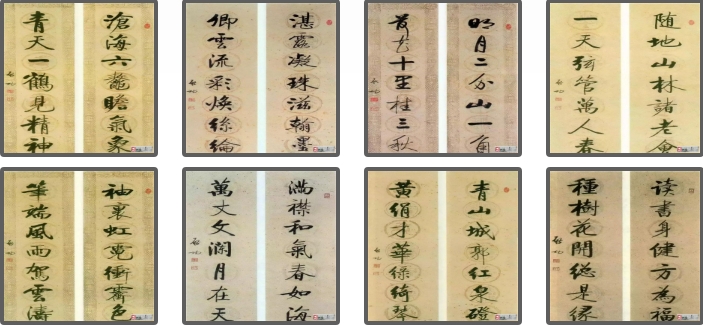 滄海六鼇瞻氣象
青天一鶴見精神
啟功
湛露凝珠滋翰墨
卿雲流彩煥絲綸
啟功
明月二分山一角
荷花十里桂三秋
随地山林諸老會
一天弦管萬人春
啟功
袖裏虹霓衝霽色
筆端風雨駕雲濤
啟功
滿襟和氣春如海
萬丈文瀾月在天
啟功
青山城郭紅泉磴
黃絹才華綠綺琴
啟功
读書身健方為福
種樹花開總是緣
啟功